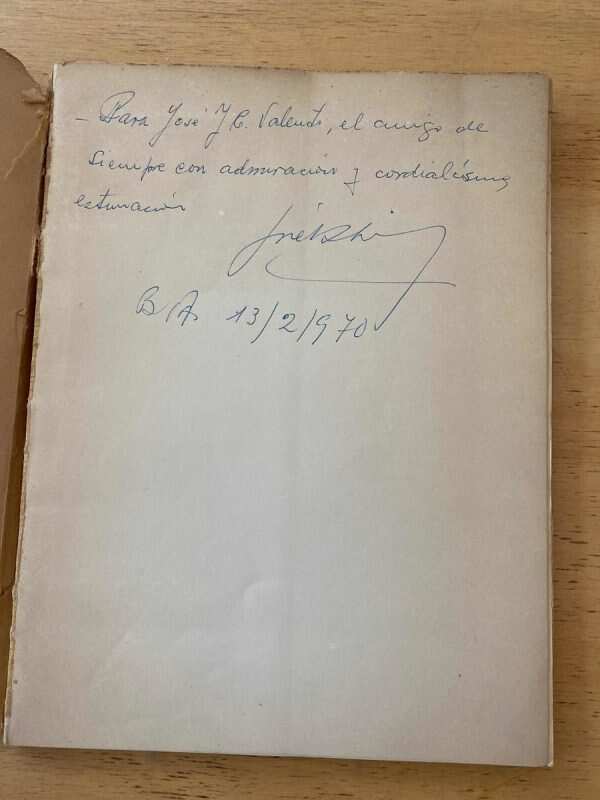 - Para José J C. Valenti, el amigo de
siempre con admiración y cordialísima
estimación
BAs 13/2/970